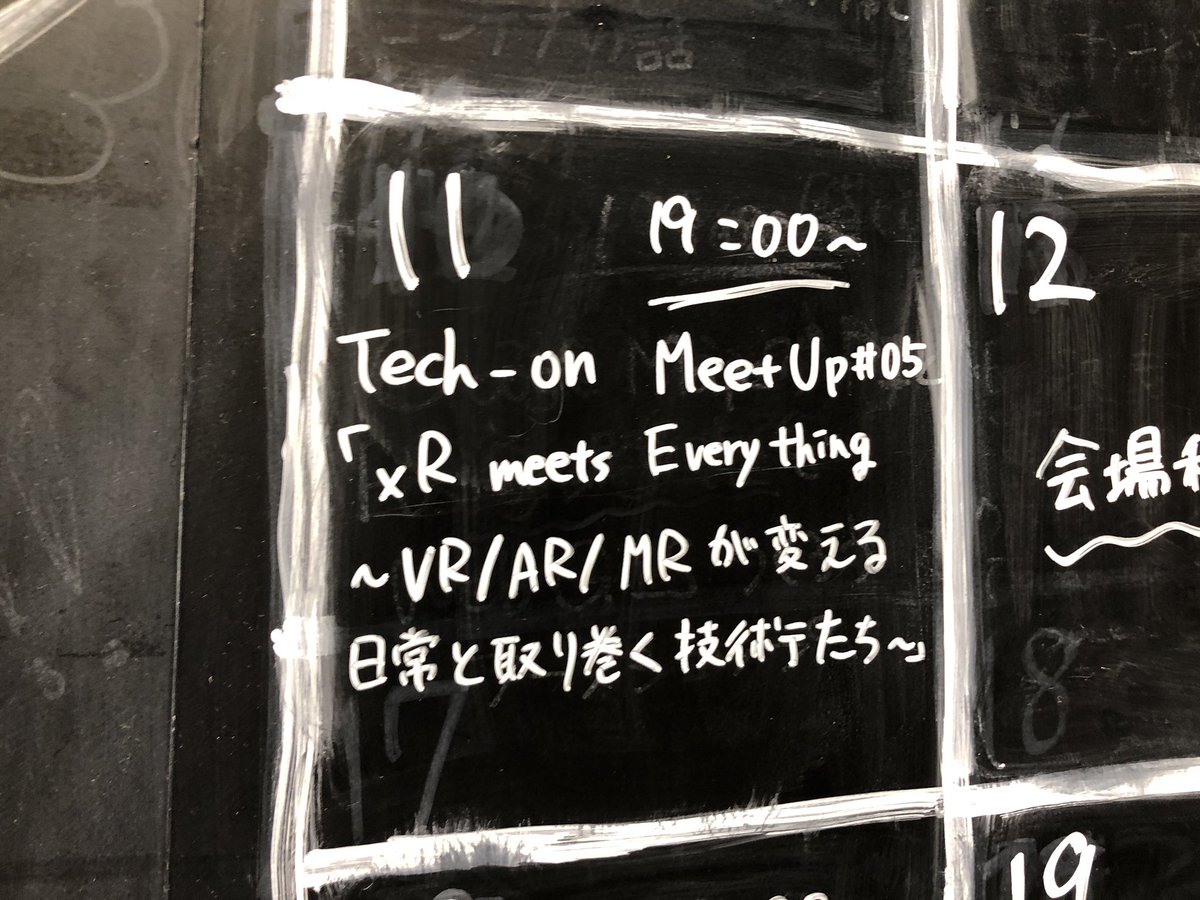 11 19:00~
Tech-on MeetUp#05
「xR meets Everything
~VR/AR/MRが変える
日常と取り巻く技術たち~」
12
会場
8
19